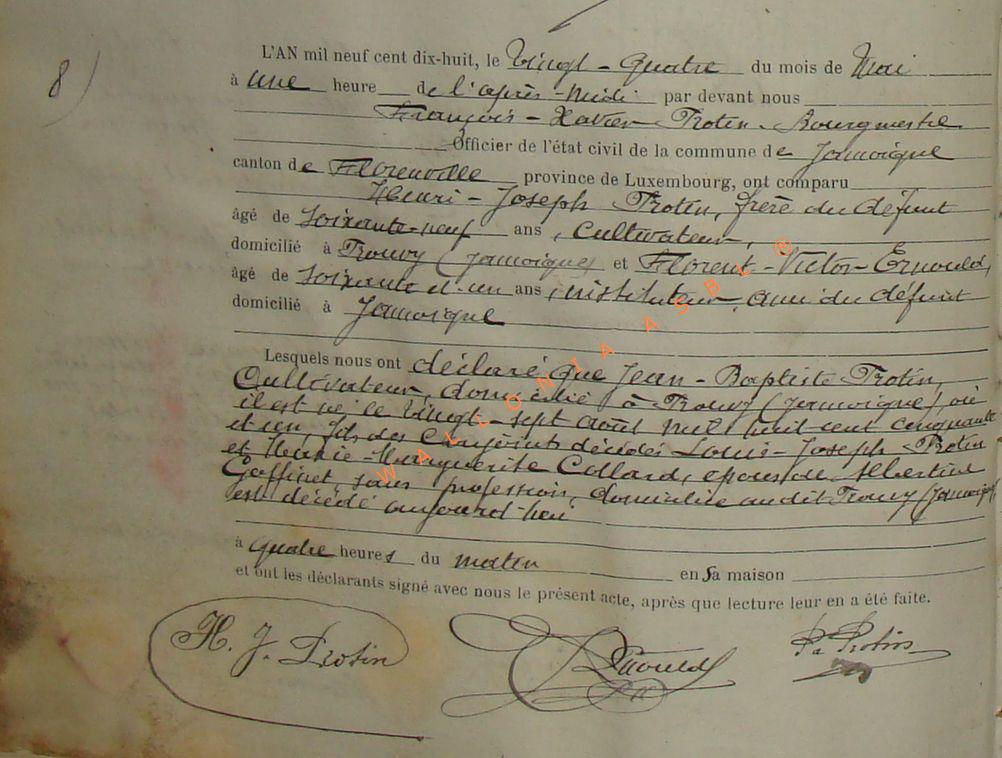 8)
L'AN mil neuf cent dix-huit, le Vingt-Quatre du mois de Mai
à une heure de l'après-midi par devant nous
François-Xavier Trotin, Bourgmestre
Officier de l'état civil de la commune de Jamoigne
canton de Florenville province de Luxembourg, ont comparu
Henri-Joseph Trotin, frère du défunt
âgé de soixante-neuf ans, cultivateur,
domicilié à Prouvy (Jamoigne) et Florent-Victor-Ernould,
âgé de soixante et un ans, instituteur, ami du défunt
domicilié à Jamoigne
Lesquels nous ont déclaré que Jean-Baptiste Trotin,
Cultivateur, domicilié à Prouvy (Jamoigne), où
il est né, le Vingt-sept avril mil huit cent cinquante
et un, fils des conjoints décédés Louis-Joseph Trotin
et Marie-Marguerite Collard, époux de Albertine
Goffinet, sans profession, domiciliée audit Prouvy (Jamoigne)
est décédé aujourd'hui
à quatre heures du matin en sa maison
et ont les déclarants signé avec nous le présent acte, après que lecture leur en a été faite.
H. J. Trotin
Ernould
Trotin
WALLONIA ASBL ®